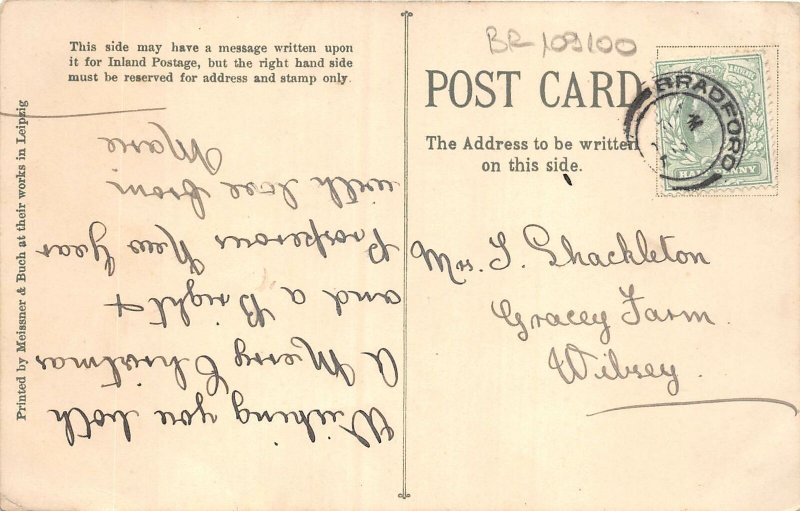 This side may have a message written upon
it for Inland Postage, but the right hand side
must be reserved for address and stamp only.
Printed by Meissner & Buch at their works in Leipzig
Wishing you both
A Merry Christmas
and a Bright &
Prosperous New Year
with love from
Marie
BR-109100
POST CARD
The Address to be written
on this side.
BRADFORD
HALFPENNY
Mrs. S. Shackleton
Gracey Farm.
Wibsey.